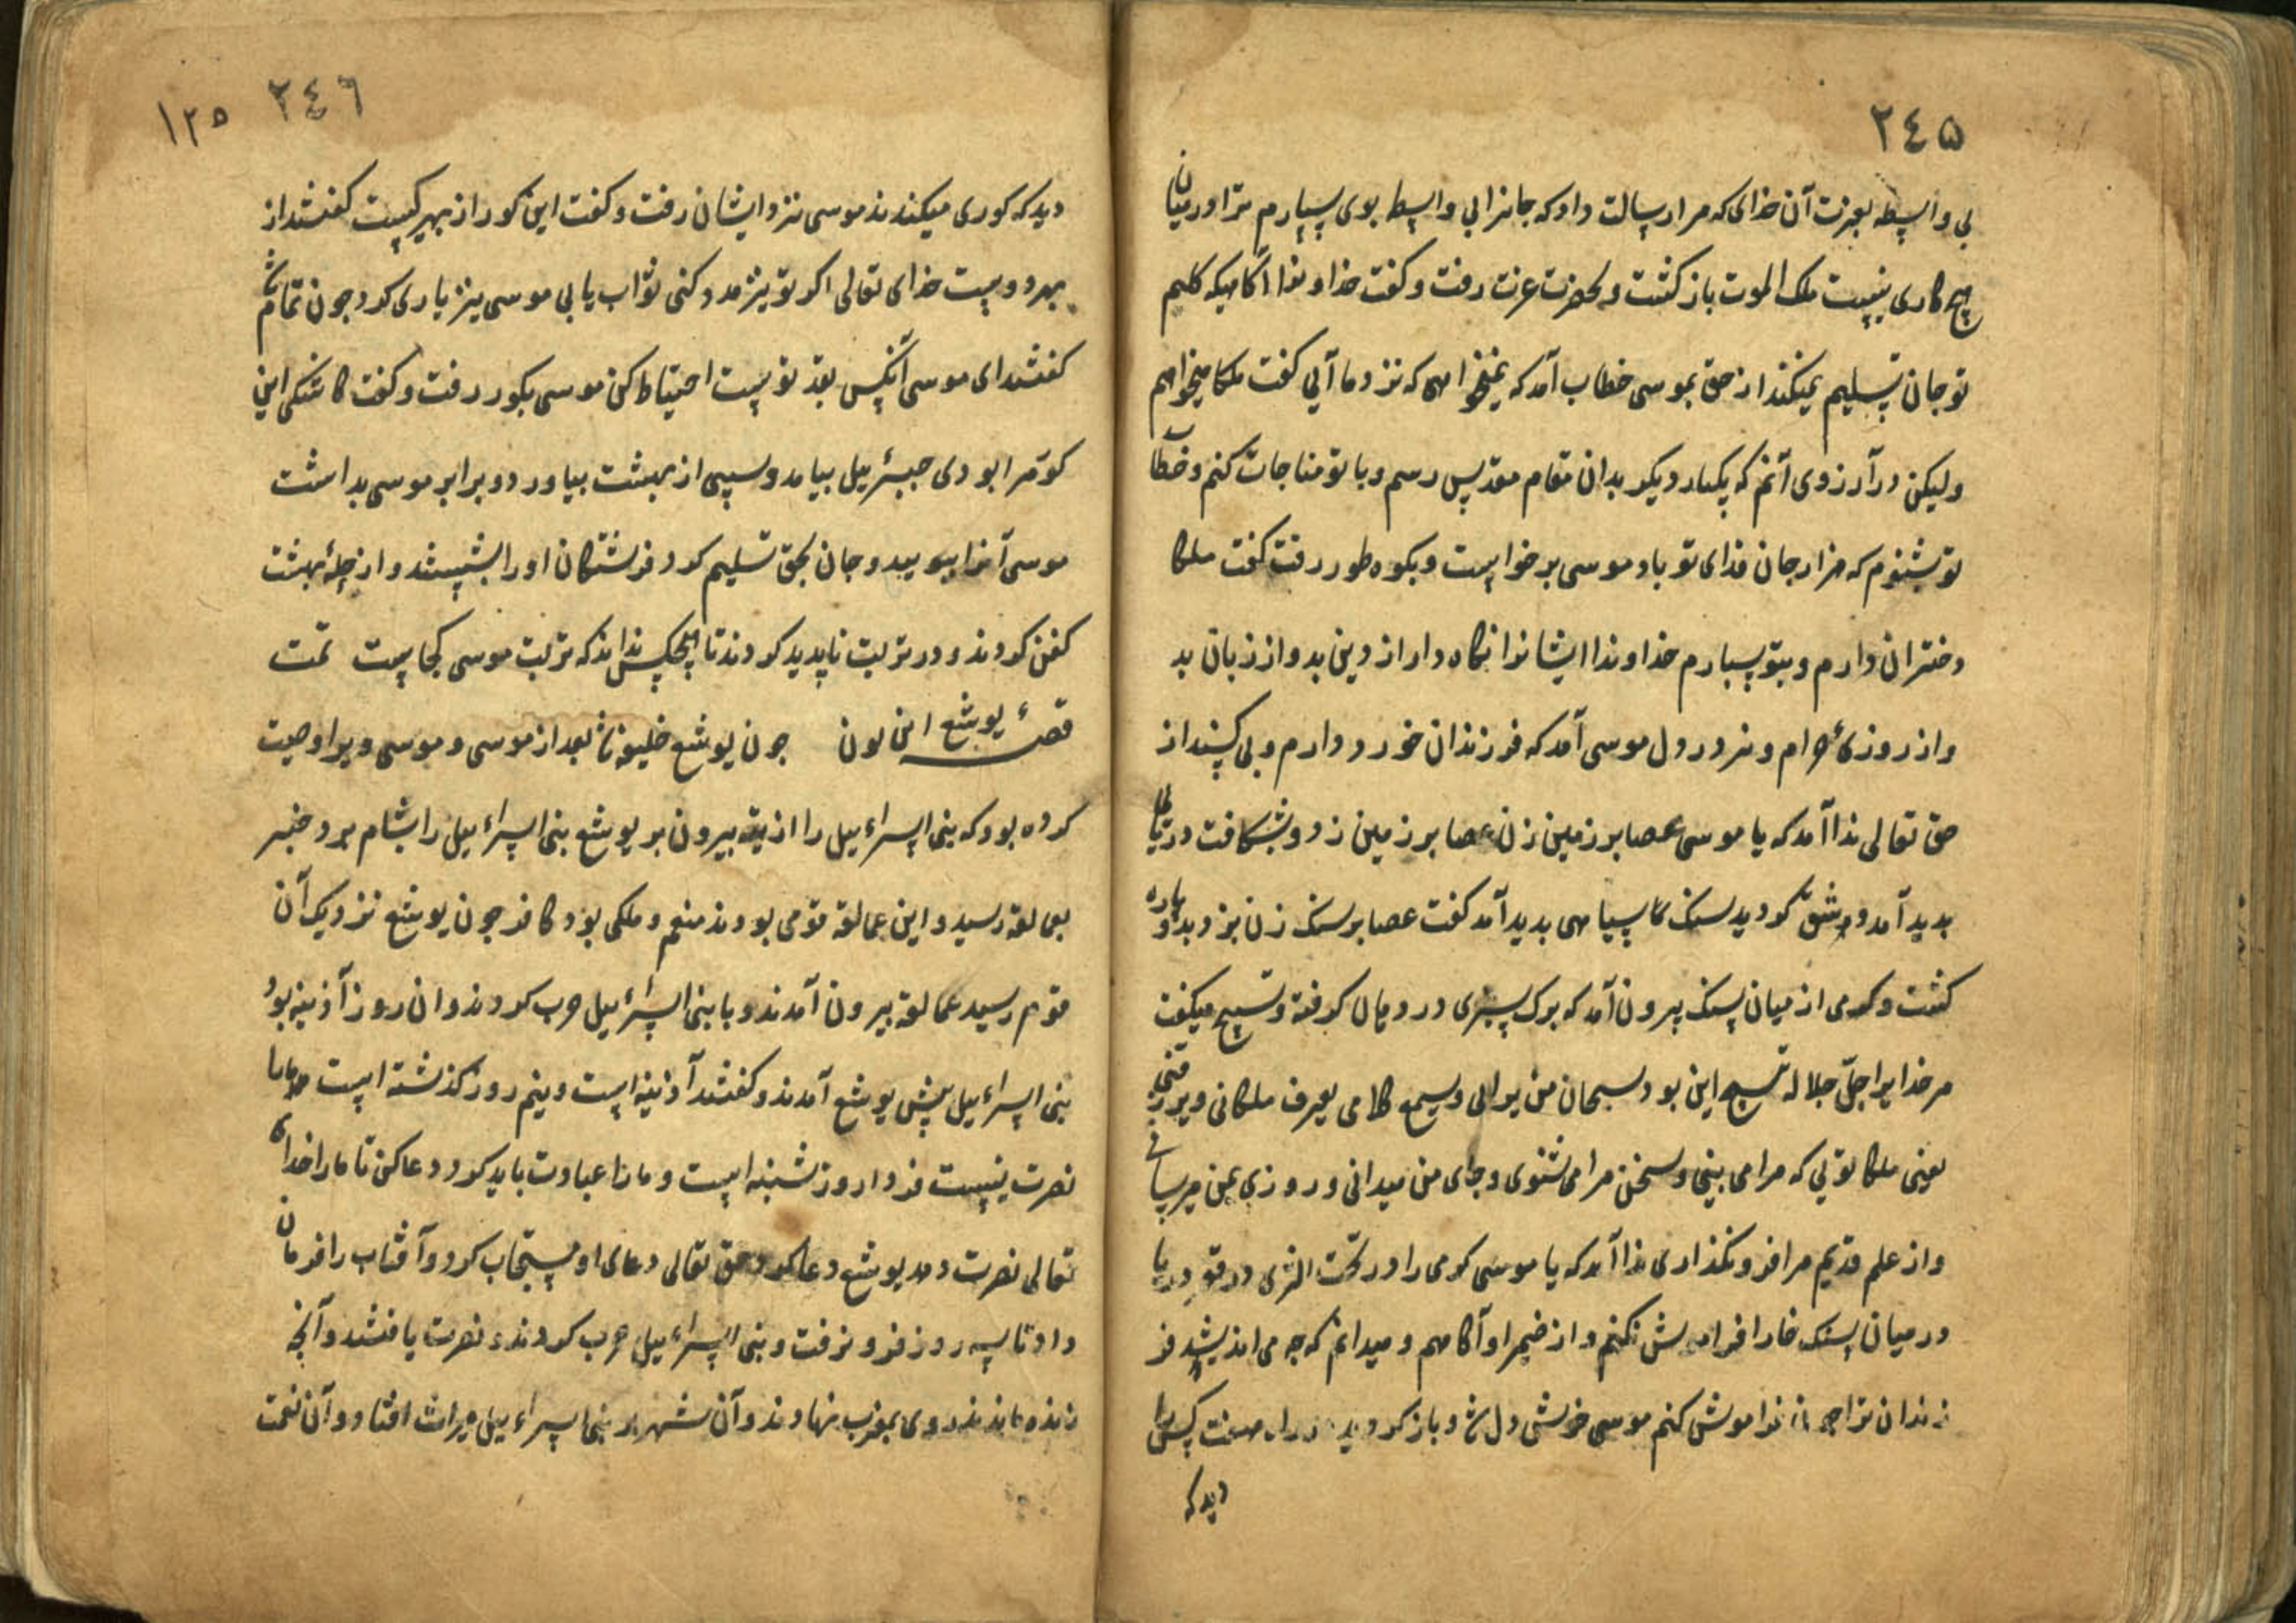 ٢٤٥
بی واسطه بعزت آن خدای که مرا رسالت داد که جانرا بی واسطه بوی سپارم ترا در میان
هیچ کاری نیست ملک الموت باز کشت و بحضرت عزت رفت و کفت خداوندا آکاهیکه کلیم
تو جان تسلیم نمیکند از حق بموسی خطاب آمد که نمیخواهی که نزد ما آیی کفت ملکا میخواهم
ولیکن در آرزوی آنم که یکبار دیکر بدان مقام مقدس رسم و با تو مناجات کنم و خطاب
تو بشنوم که هزار جان فدای تو باد موسی برخواست و بکوه طور رفت کفت ملکا
دختران دارم و بتو سپارم خداوندا ایشانرا نکاه دار از دین بد و از زبان بد
و از روزئ حرام و نیز در دل موسی آمد که فرزندان خورد دارم و بی کسند از
حق تعالی ندا آمد که یا موسی عصا بر زمین زن عصا بر زمین زد و بشکافت دریای
پدید آمد و شق کردید سنک سیاهی پدید آمد کفت عصا بر سنک زن بزد بدو پاره
کشت و کرمی از میان سنک بیرون آمد که برک سبزی در دهان کرفته و تسبیح میکفت
مر خدایرا جل جلاله تسبیح این بود سبحان من یرانی ویسمع کلامی یعرف مکانی ویرزقنی
یعنی ملکا تویی که مرا می بینی و سخن مرا می شنوی و جای من میدانی و روزی بمن میرسانی
و از علم قدیم مرا فرو نکذاری ندا آمد که یا موسی کرمی را در تحت الثری در قعر دریا
در میان سنک خارا فراموش نکنم و از ضمیر او آکاهم و میدانم که چه می اندیشد فر
زندان ترا چون فراموش کنم موسی خوش دل شد و باز کردید در راه هفت کس را
دید که
٢٤٦ ١٢٥
دید که کوری میکندند موسی نزد ایشان رفت و کفت این کور از بهر کیست کفتند از
بهر دوست خدای تعالی اکر تو نیز مدد کنی ثواب یابی موسی نیز یاری کرد چون تمام شد
کفتند ای موسی آنکس بقد توست احتیاط کن موسی بکور رفت و کفت کاشکی این
کور مرا بودی جبرئیل بیامد و سیبی از بهشت بیاورد و برابر موسی بداشت
موسی آنرا ببویید و جان بحق تسلیم کرد فرشتکان اورا بشستند و از حلهٔ بهشت
کفن کردند و در تربت ناپدید کردند تا هیچکس نداند که تربت موسی کجاست تمت
قصهٔ یوشع ابن نون چون یوشع خلیفه شد بعد از موسی و موسی ویرا وصیت
کرده بود که بنی اسرائیل را از تیه بیرون بر یوشع بنی اسرائیل را بشام برد خبر
بعمالقه رسید و این عمالقه قومی بودند منعم و ملکی بود کافر چون یوشع نزدیک آن
قوم رسید عمالقه بیرون آمدند و با بنی اسرائیل حرب کردند و ان روز آذینه بود
بنی اسرائیل پیش یوشع آمدند و کفتند آذینه است و نیم روز کذشته است
نصرت نیست فردا روز شنبه است و مارا عبادت باید کرد دعا کن تا مارا خدای
تعالی نصرت دهد یوشع دعا کرد حق تعالی دعای او مستجاب کرد و آفتاب را فرمان
داد تا سه روز فرو نرفت و بنی اسرائیل حرب کردند و نصرت یافتند و آنچه
زنده ماندند روی بمغرب نهادند و آن شهر بر بنی اسرائیل میراث افتاد و آن نعمت